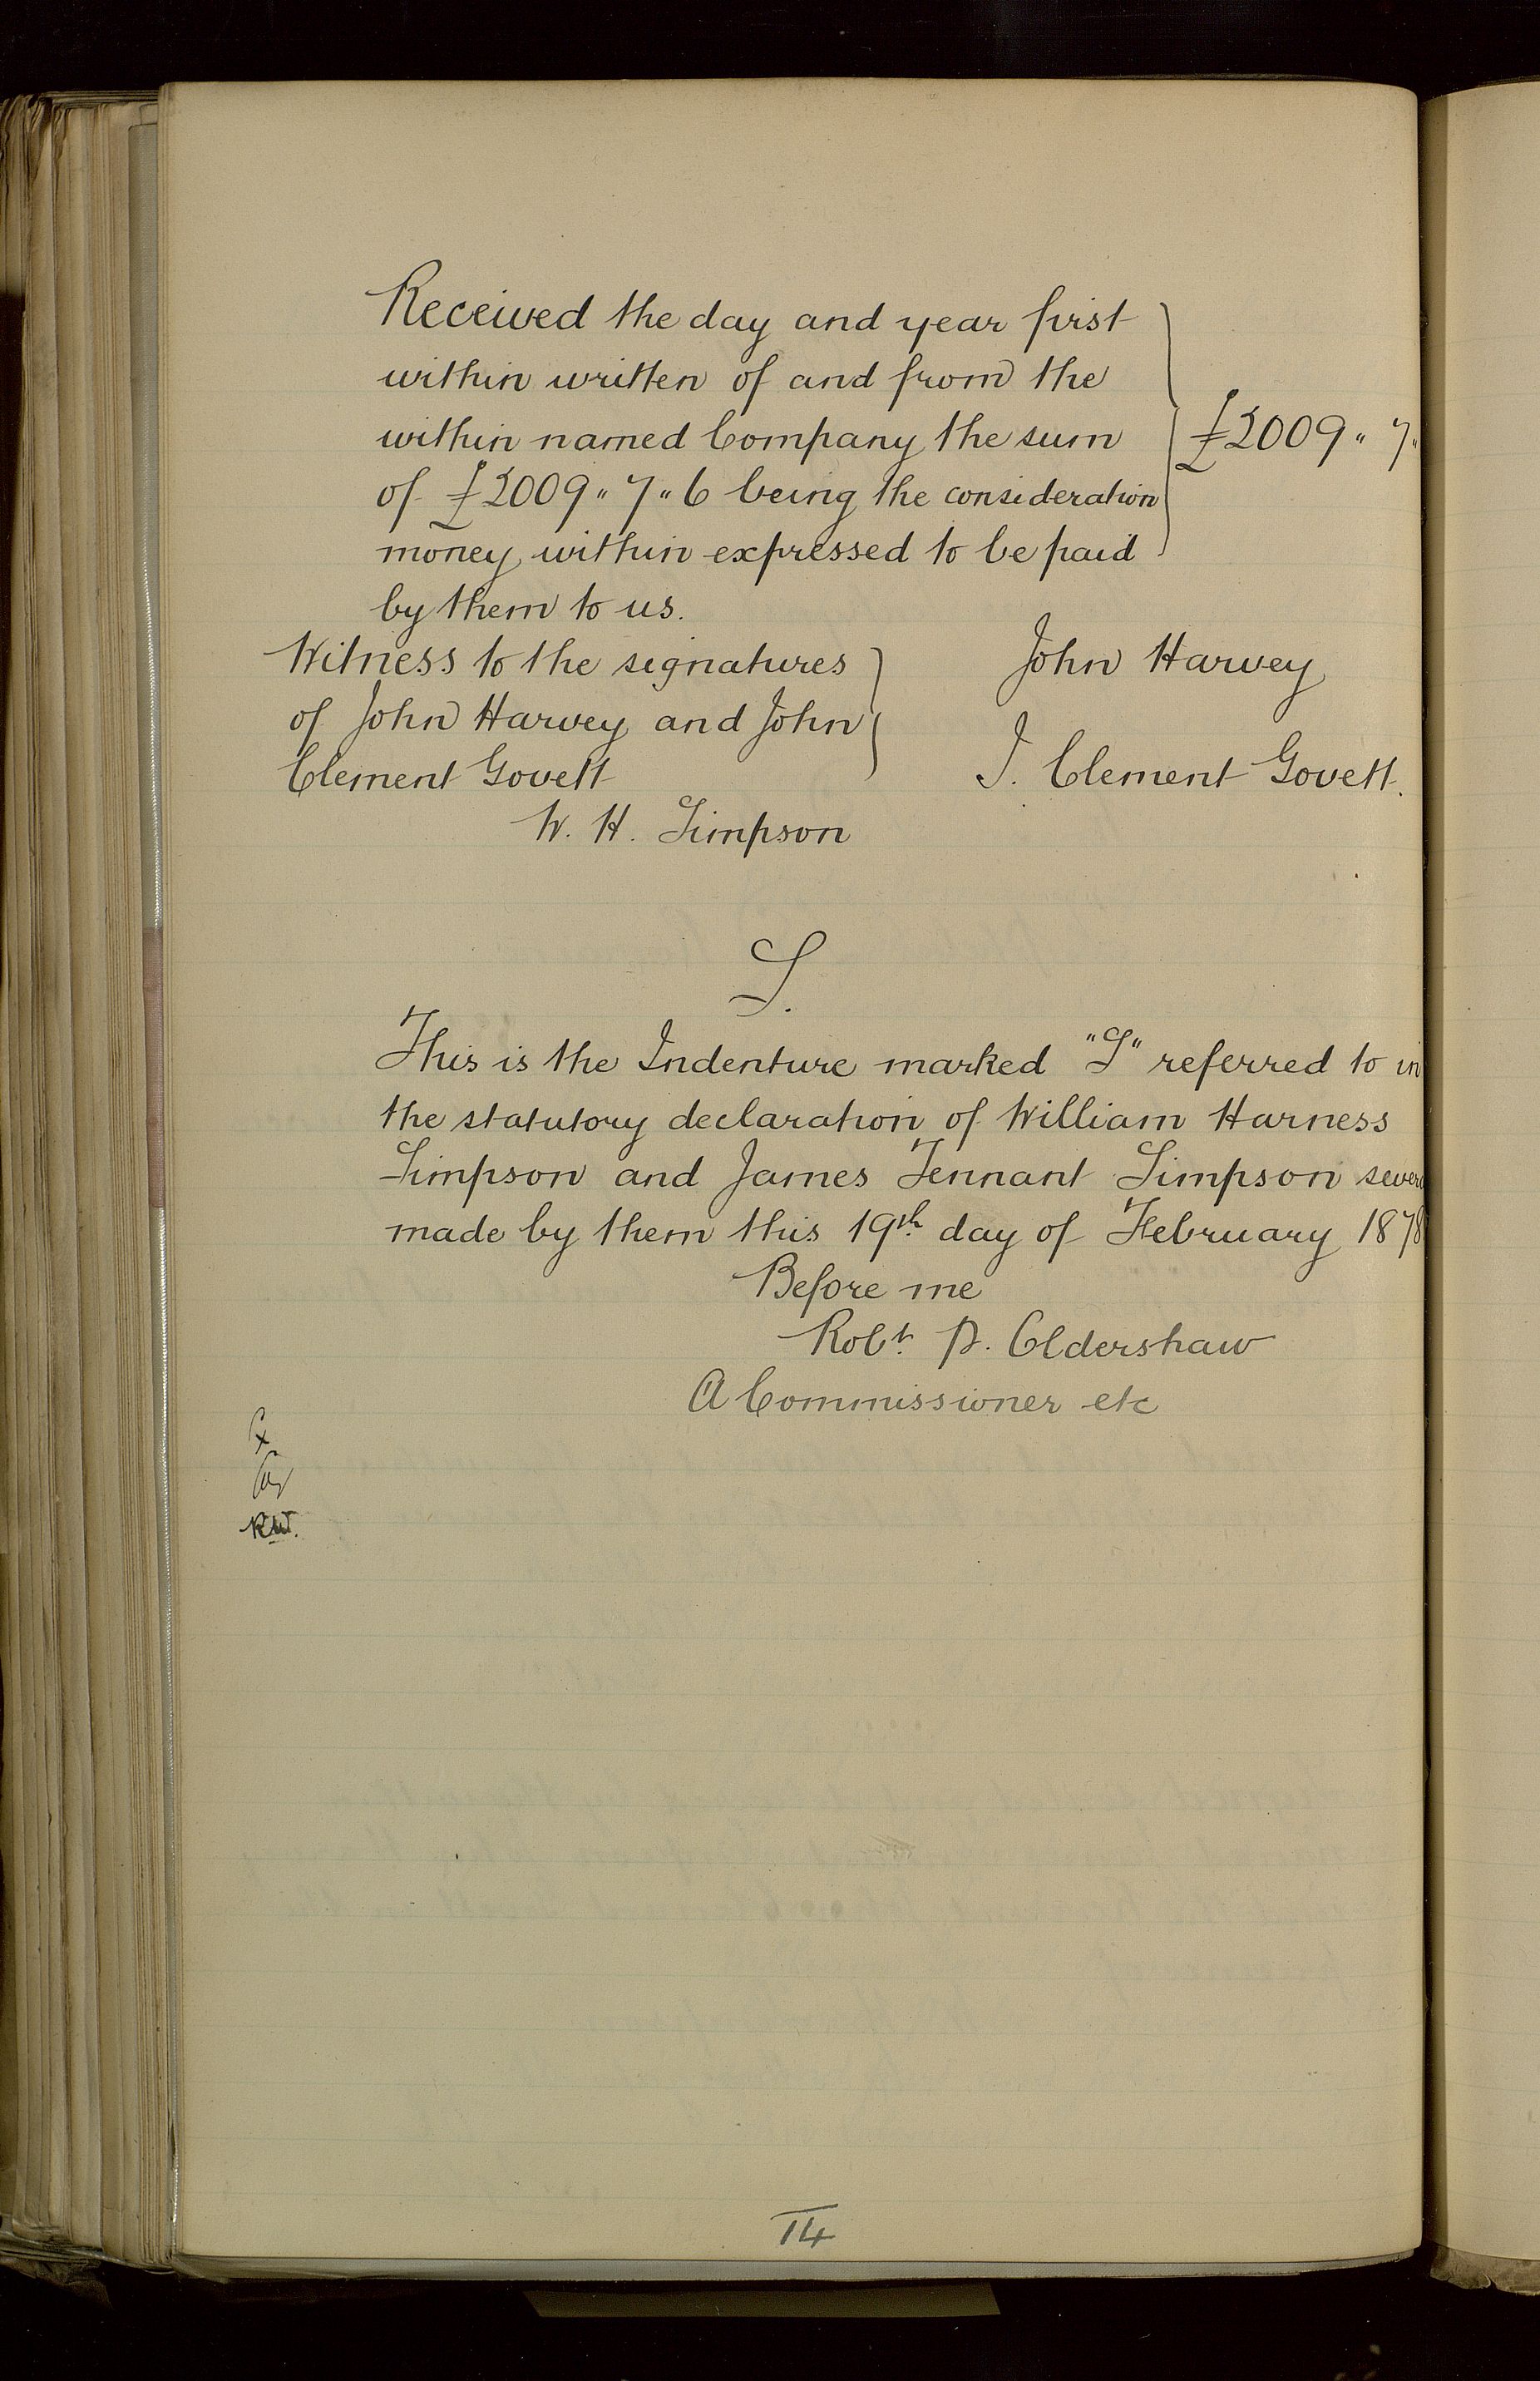 Received the day and year first
within written of and from the
within named Company the sum
of £2009 " 7 " 6 being the consideration
money within expressed to be paid
by them to us.
£2009 " 7 "
Witness to the signatures
of John Harvey and John
Clement Govett
W. H. Simpson
John Harvey
J. Clement Govett.
S.
This is the Indenture marked "S" referred to in
the statutory declaration of William Harness
Simpson and James Tennant Simpson sever
made by them this 19th. day of February 1878
Before me
Robt. A. Oldershaw
A Commissioner etc
14